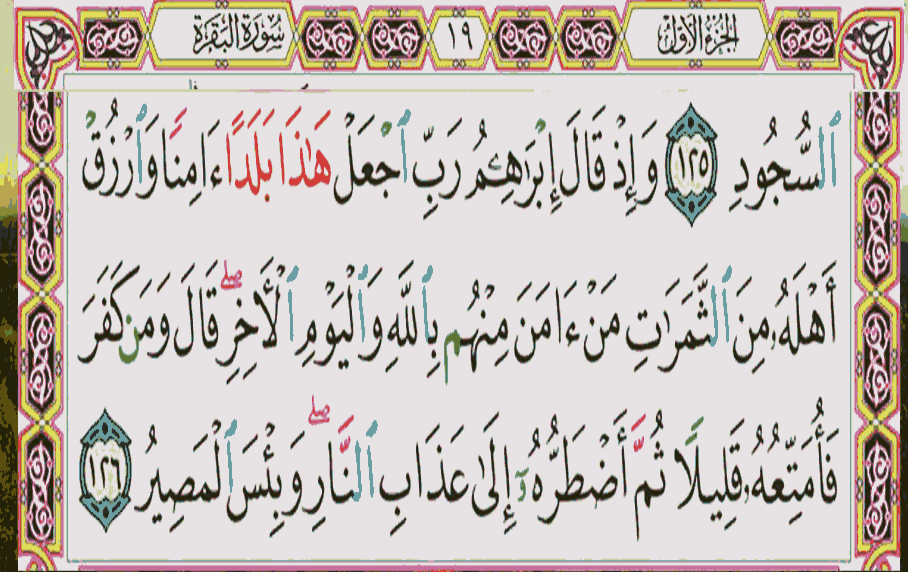 الجزء الأول
١٩
سورة البقرة
ٱلسُّجُودِ ١٢٥ وَإِذْ قَالَ إِبْرَٰهِـۧمُ رَبِّ ٱجْعَلْ هَٰذَا بَلَدًا ءَامِنًا وَٱرْزُقْ
أَهْلَهُۥ مِنَ ٱلثَّمَرَٰتِ مَنْ ءَامَنَ مِنْهُم بِٱللَّهِ وَٱلْيَوْمِ ٱلْأَخِرِ ۖ قَالَ وَمَن كَفَرَ
فَأُمَتِّعُهُۥ قَلِيلًا ثُمَّ أَضْطَرُّهُۥٓ إِلَىٰ عَذَابِ ٱلنَّارِ ۖ وَبِئْسَ ٱلْمَصِيرُ ١٢٦